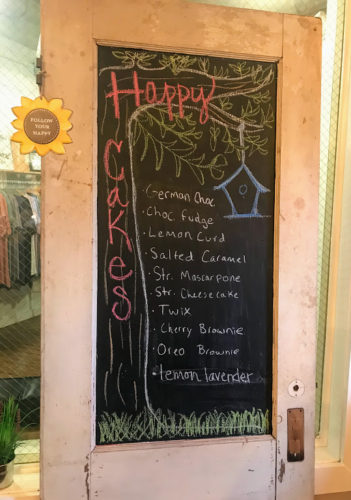 Happy
Cakes
FOLLOW
YOUR
HAPPY
· German Choc
· Choc fudge
· Lemon Curd
· Salted Caramel
· Str. Mascarpone
· Str. Cheesecake
· Twix
· Cherry Brownie
· Oreo Brownie
· lemon lavender